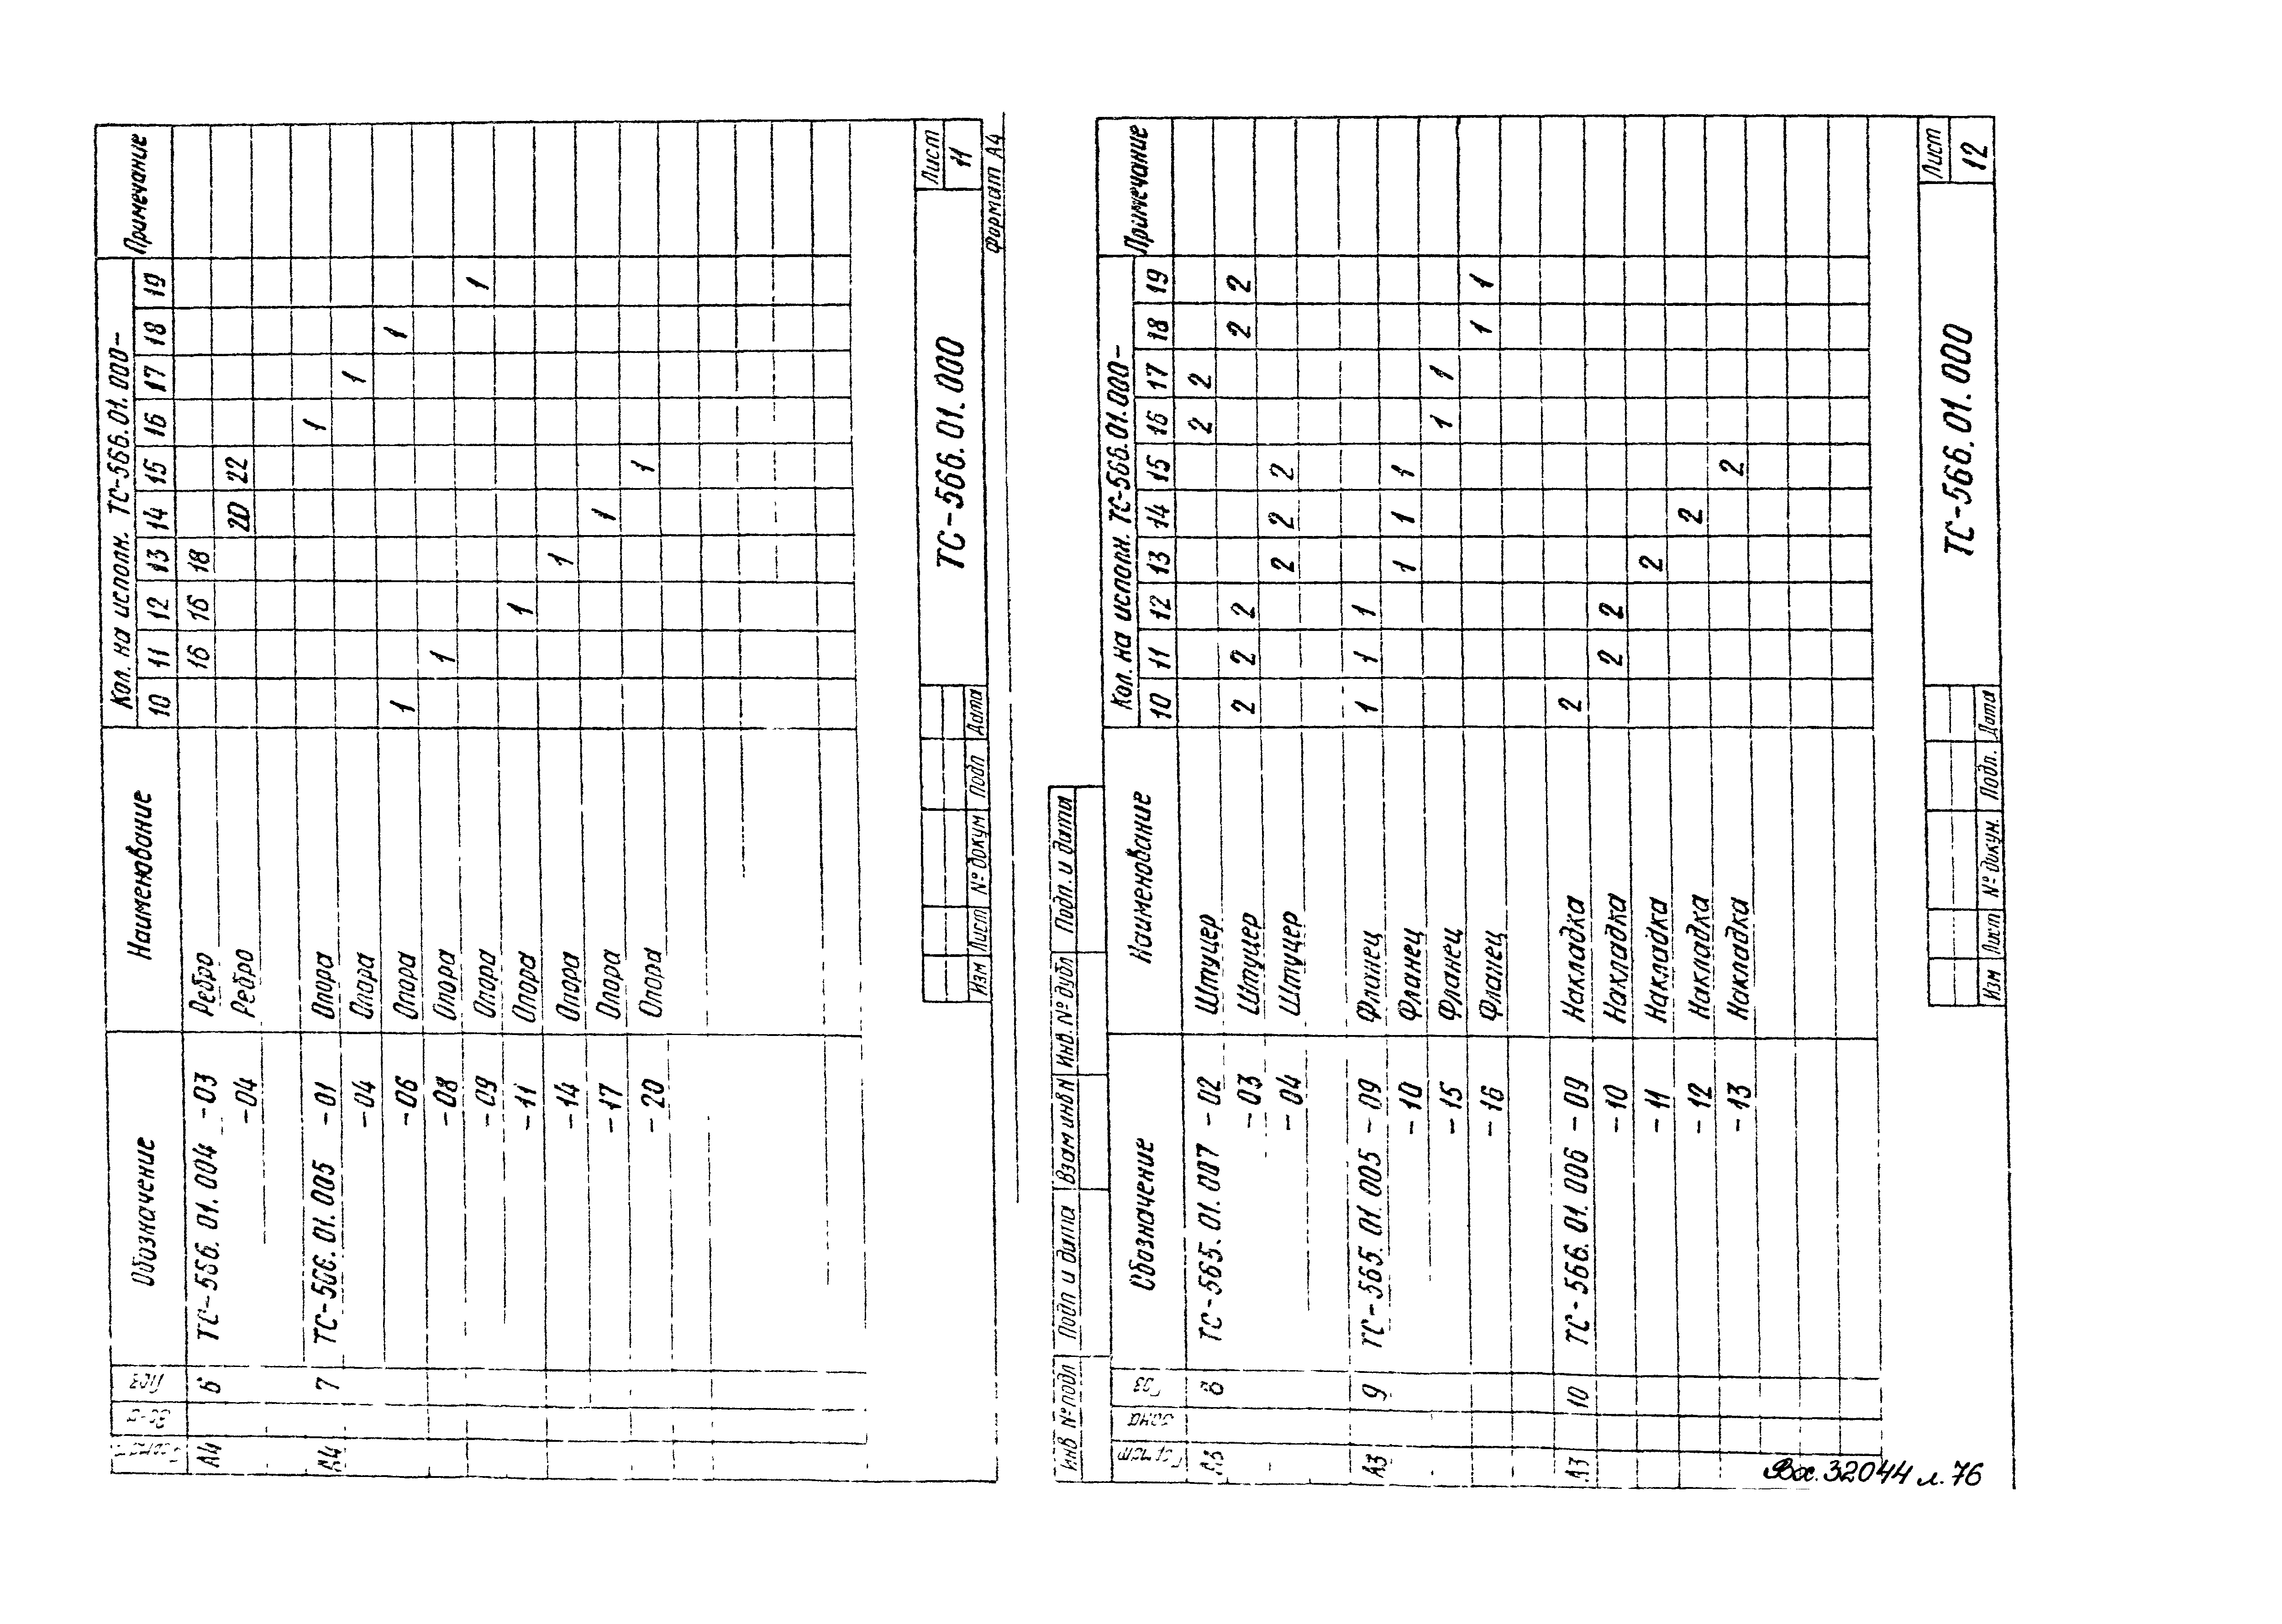 Формат Зона Поз Обозначение Наименование Кол. на исполн. ТС-566.01.000- Примечание
10 11 12 13 14 15 16 17 18 19
А4 6 ТС-566.01.004 -03 Ребро 16 16 18
-04 Ребро 20 22
А4 7 ТС-566.01.005 -01 Опора 1
-04 Опора 1
-06 Опора 1 1
-08 Опора 1
-09 Опора 1
-11 Опора 1
-14 Опора 1
-17 Опора 1
-20 Опора 1
ТС-566.01.000
Лист
11
Изм Лист № докум Подп Дата
Формат А4
Инв № подл Подп и дата Взам инв № Инв. № дубл Подп. и дата
Формат Зона Поз Обозначение Наименование Кол. на исполн. ТС-566.01.000- Примечание
10 11 12 13 14 15 16 17 18 19
А3 8 ТС-565.01.007 -02 Штуцер 2 2
-03 Штуцер 2 2 2 2 2
-04 Штуцер 2 2 2
А3 9 ТС-565.01.005 -09 Фланец 1 1 1
-10 Фланец 1 1 1
-15 Фланец 1 1
-16 Фланец 1 1
А3 10 ТС-566.01.006 -09 Накладка 2
-10 Накладка 2 2
-11 Накладка 2
-12 Накладка 2
-13 Накладка 2
ТС-566.01.000
Лист
12
Изм Лист № докум. Подп. Дата
Вх. 32044 л. 76